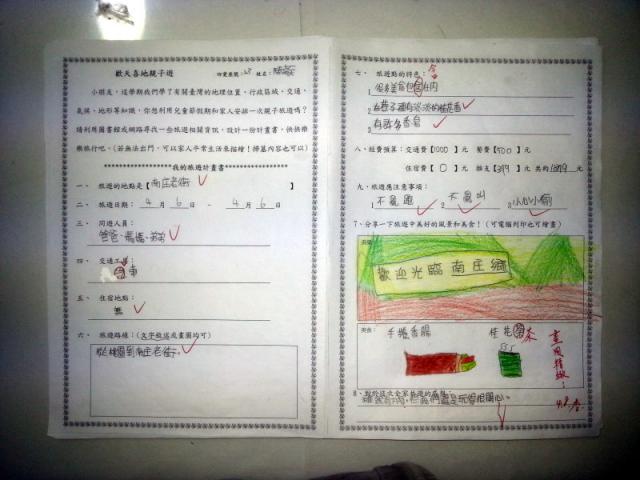 歡天喜地親子遊
印愛座號：25 姓名：
小朋友，這學期我們學了有關臺灣的地理位置、行政區域、交通、
氣候、地形等知識，你想利用兒童節假期和家人安排一次親子旅遊嗎？
請利用圖書館或網路尋找一些旅遊相關資訊，設計一份計畫書，快快樂
樂旅行吧。(若無法出門，可以家人平常生活來描繪！掃墓內容也可以)
********************我的旅遊計畫書******************
一、 旅遊的地點是【南庄老街】
二、 旅遊日期： 4 月 6 日 - 4 月 6 日
三、 同遊人員：
爸爸、媽媽、弟弟
四、 交通工具：
車
五、 住宿地點：
無
六、 旅遊路線：(文字敘述或畫圖均可)
從桃園到南庄老街。
七、 旅遊點的特色：
1.
2.
3.有許多香腸
八、經費預算：交通費【1000】元 餐費【500】元
住宿費【 0 】元 雜支【399】元 共約1899元
九、旅遊應注意事項：
1. 不亂跑 2. 不亂叫 3. 小心小偷
7、分享一下旅遊中美好的風景和美食！(可電腦列印也可繪畫)
風景：
歡迎光臨南庄鄉
美食：
手捲香腸
桂花茶
8、對於這次全家旅遊的感想：
畫風精緻！